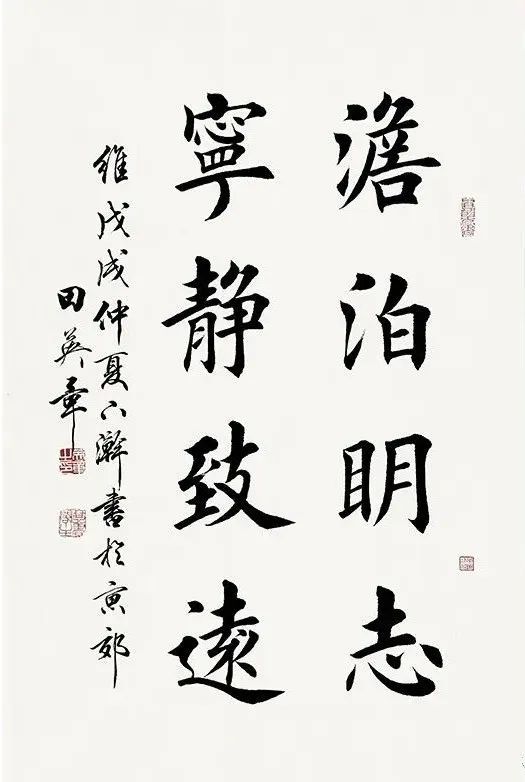 澹泊明志
寧静致遠
維戊戌仲夏下澣書於京郊
田英章